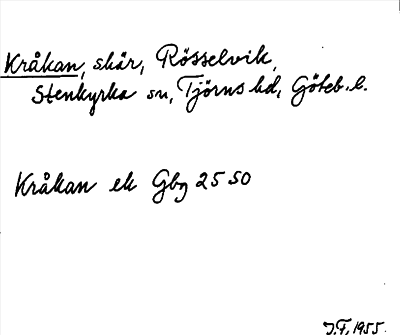 Kråkan, skär, Rösselvik,
Stenkyrka sn, Tjörns hd, Göteb. l.
Kråkan ek Gbg 25 SO
J.F. 1955.